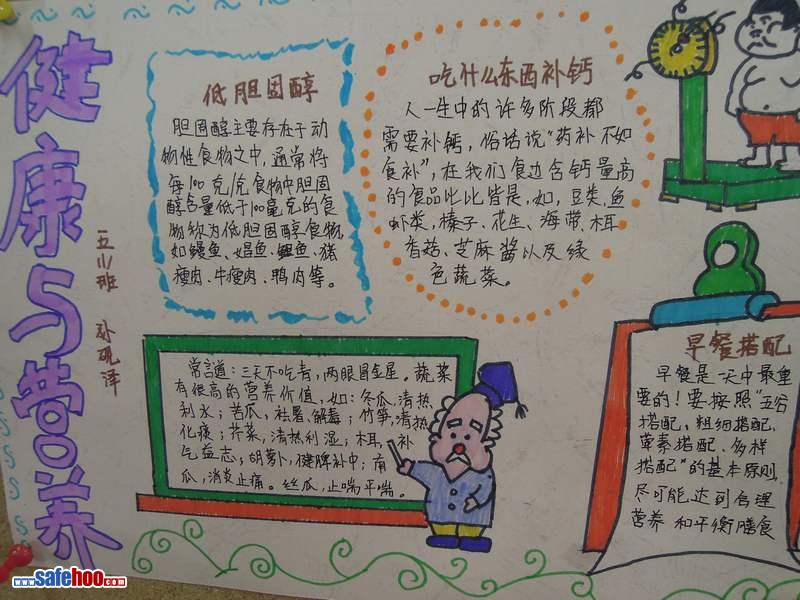 健康与营养
五(1)班
孙砚泽
低胆固醇
胆固醇主要存在于动
物性食物之中,通常将
每100克/克食物中胆固
醇含量低于100毫克的食
物称为低胆固醇食物,
如鳗鱼、鲳鱼、鲤鱼、猪
瘦肉、牛瘦肉、鸭肉等。
吃什么东西补钙
人一生中的许多阶段都
需要补钙,俗话说"药补不如
食补",在我们食边含钙量高
的食品比比皆是,如,豆类、鱼
虾类,榛子、花生、海带、木耳
香菇、芝麻酱以及绿
色蔬菜。
常言道:三天不吃青,两眼冒金星。蔬菜
有很高的营养价值,如:冬瓜,清热
利水;苦瓜,祛暑、解毒;竹笋,清热
化痰;芹菜,清热利湿;木耳,补
气益志;胡萝卜,健脾补中;南
瓜,消炎止痛。丝瓜,止喘平喘。
早餐搭配
早餐是一天中最重
要的!要按照"五谷
搭配,粗细搭配,
荤素搭配、多样
搭配"的基本原则,
尽可能达到合理
营养和平衡膳食
www.safehoo.com